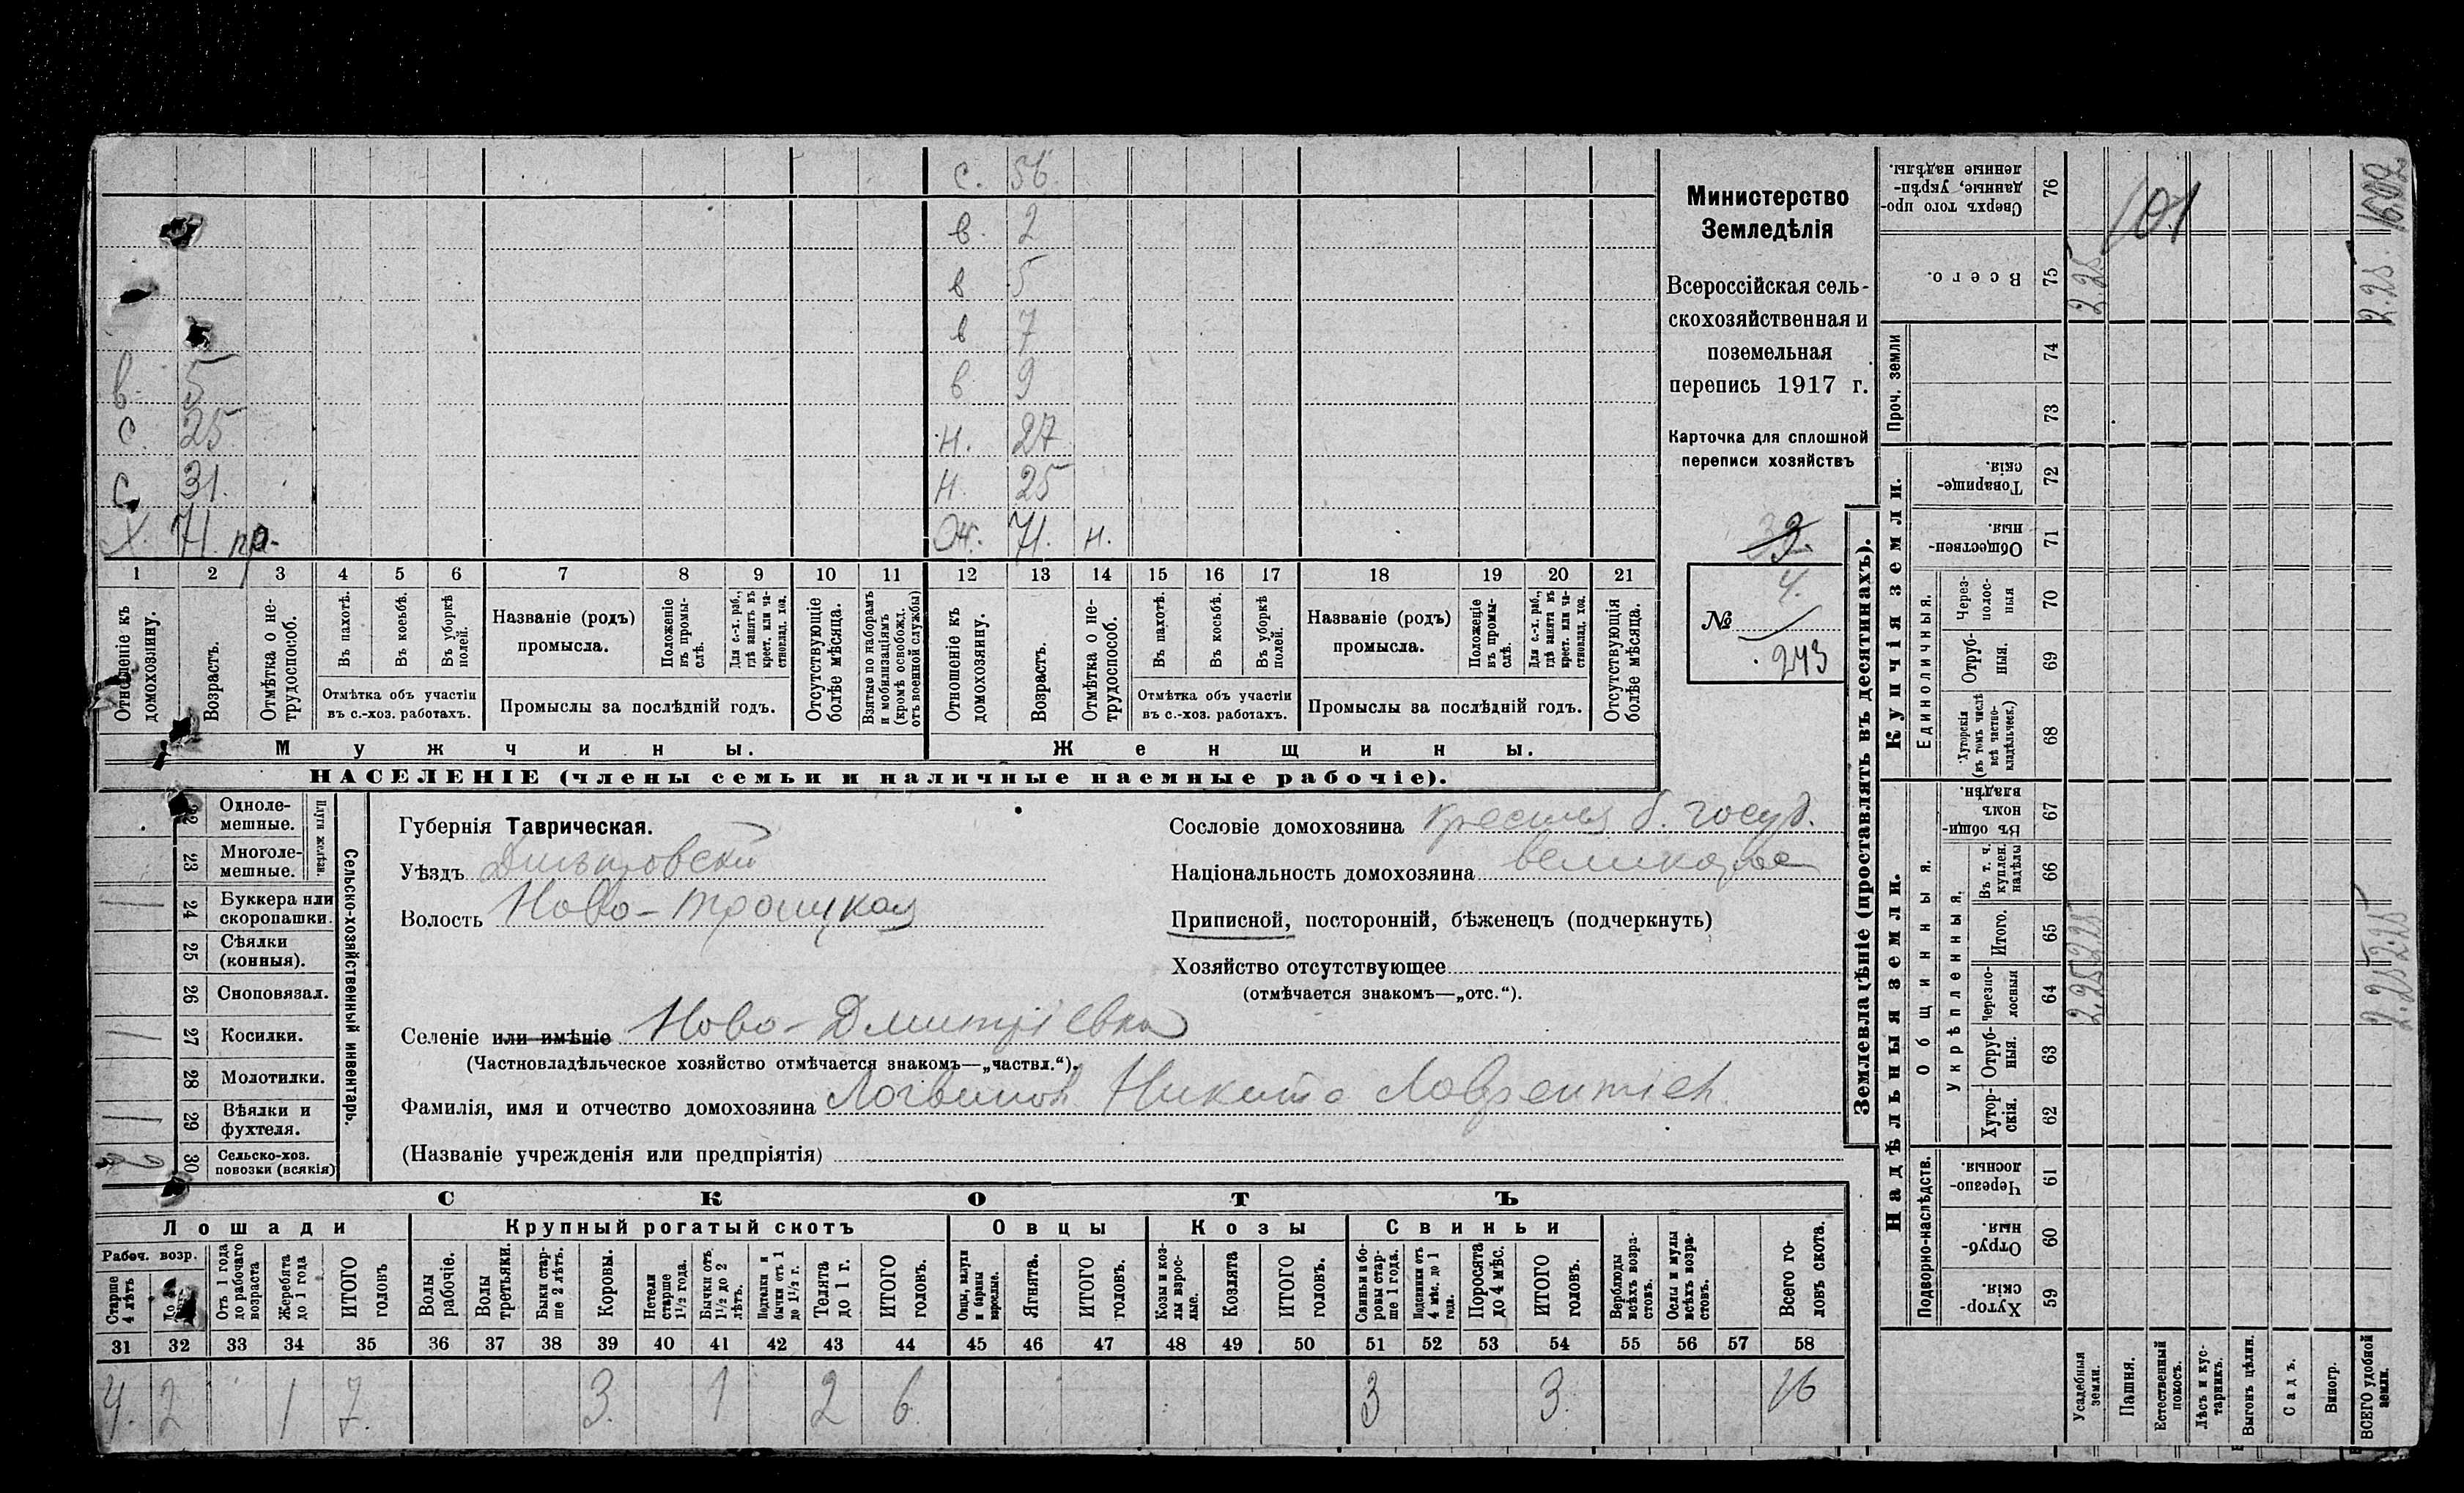 с. 56
в. 2
в 5
в 7
в. 9
в. 5
с. 25
н. 27
с 31.
н. 25
х. 71 пр.
Ж. 71. н.
1 2 3 4 5 6 7 8 9 10 11 12 13 14 15 16 17 18 19 20 21
Отношеніе къ домохозяину.
Возрастъ.
Отмѣтка о нетрудоспособ.
Въ пахотѣ.
Въ косьбѣ.
Въ уборкѣ полей.
Отмѣтка объ участіи въ с.-хоз. работахъ.
Названіе (родъ) промысла.
Положеніе въ промыслѣ.
Для с.-х. раб., гдѣ занятъ въ крест. или частновлад. хоз.
Промыслы за послѣдній годъ.
Отсутствующіе болѣе мѣсяца.
Взятые по наборамъ и мобилизаціямъ (кромѣ освобожд. отъ военной службы)
Отношеніе къ домохозяину.
Возрастъ.
Отмѣтка о нетрудоспособ.
Въ пахотѣ.
Въ косьбѣ.
Въ уборкѣ полей.
Отмѣтка объ участіи въ с.-хоз. работахъ.
Названіе (родъ) промысла.
Положеніе въ промыслѣ.
Для с.-х. раб., гдѣ занята въ крест. или частновлад. хоз.
Промыслы за послѣдній годъ.
Отсутствующія болѣе мѣсяца.
Мужчины.
Женщины.
НАСЕЛЕНІЕ (члены семьи и наличные наемные рабочіе).
Министерство
Земледѣлія
Всероссійская сель-
скохозяйственная и
поземельная
перепись 1917 г.
Карточка для сплошной
переписи хозяйствъ
33.
4.
№
243
Сельско-хозяйственный инвентарь.
Плуги желѣзн.
22 Одноле-
мешные.
23 Многоле-
мешные.
24 Буккера или
скоропашки.
1
25 Сѣялки
(конныя).
26 Сноповязал.
27 Косилки.
1
28 Молотилки.
29 Вѣялки и
фухтеля.
1
30 Сельско-хоз.
повозки (всякія)
2
Губернія Таврическая.
Уѣздъ Днѣпровскій
Волость Ново-Троицкая
Сословіе домохозяина крестья б. госуд.
Національность домохозяина великорос
Приписной, посторонній, бѣженецъ (подчеркнуть)
Хозяйство отсутствующее
(отмѣчается знакомъ—„отс.“).
Селеніе или имѣніе Ново-Дмитріевка
(Частновладѣльческое хозяйство отмѣчается знакомъ—„частвл.“).
Фамилія, имя и отчество домохозяина Логвинов Никита Лаврентіев.
(Названіе учрежденія или предпріятія)
СКОТЪ
Лошади
Крупный рогатый скотъ
Овцы
Козы
Свиньи
Рабоч. возр.
Старше 4 лѣтъ
Отъ 1 года до рабочаго возраста
Жеребята до 1 года
ИТОГО головъ
Волы рабочіе.
Волы третьяки.
Быки старше 2 лѣтъ.
Коровы.
Нетели старше 1½ года.
Бычки отъ 1½ до 2 лѣтъ.
Подтелки и бычки отъ 1 до 1½ г.
Телята до 1 г.
ИТОГО головъ.
Овцы, валухи и бараны взрослые.
Ягнята.
ИТОГО головъ.
Козы и козлы взрослые.
Козлята
ИТОГО головъ.
Свиньи и боровы старше 1 года.
Подсвинки отъ 4 мѣс. до 1 года.
Поросята до 4 мѣс.
ИТОГО головъ.
Верблюды всѣхъ возрастовъ.
Ослы и мулы всѣхъ возрастовъ.
Всего головъ скота.
31 32 33 34 35 36 37 38 39 40 41 42 43 44 45 46 47 48 49 50 51 52 53 54 55 56 57 58
4. 2 1 7. 3. 1 2 6. 3 3. 16
Землевладѣніе (проставлять въ десятинахъ).
Надѣльныя земли.
Купчія земли.
Проч. земли
Подворно-наслѣдств.
Общинныя.
Укрѣпленныя.
Единоличныя.
59 Хуторскія.
60 Отрубныя.
61 Черезполосныя.
62 Хуторскія.
63 Отрубныя.
64 Черезполосныя
65 Итого.
66 Въ т. ч. куплен. надѣлы
67 Въ общинномъ владѣн.
68 Хуторскія (въ томъ числѣ всѣ частновладѣльческ.)
69 Отрубныя.
70 Черезполосныя
71 Общественныя.
72 Товарищескія.
73
74
75 Всего.
76 Сверхъ того проданные, укрѣпленные надѣлы.
Усадебныя земли.
2.25 2.25 2.25
101
Пашня.
Естественный покосъ.
Лѣсъ и кустарникъ.
Выгонъ цѣлин.
Садъ.
Виногр.
ВСЕГО удобной земли.
2.25 2.25 2.25. 16.02